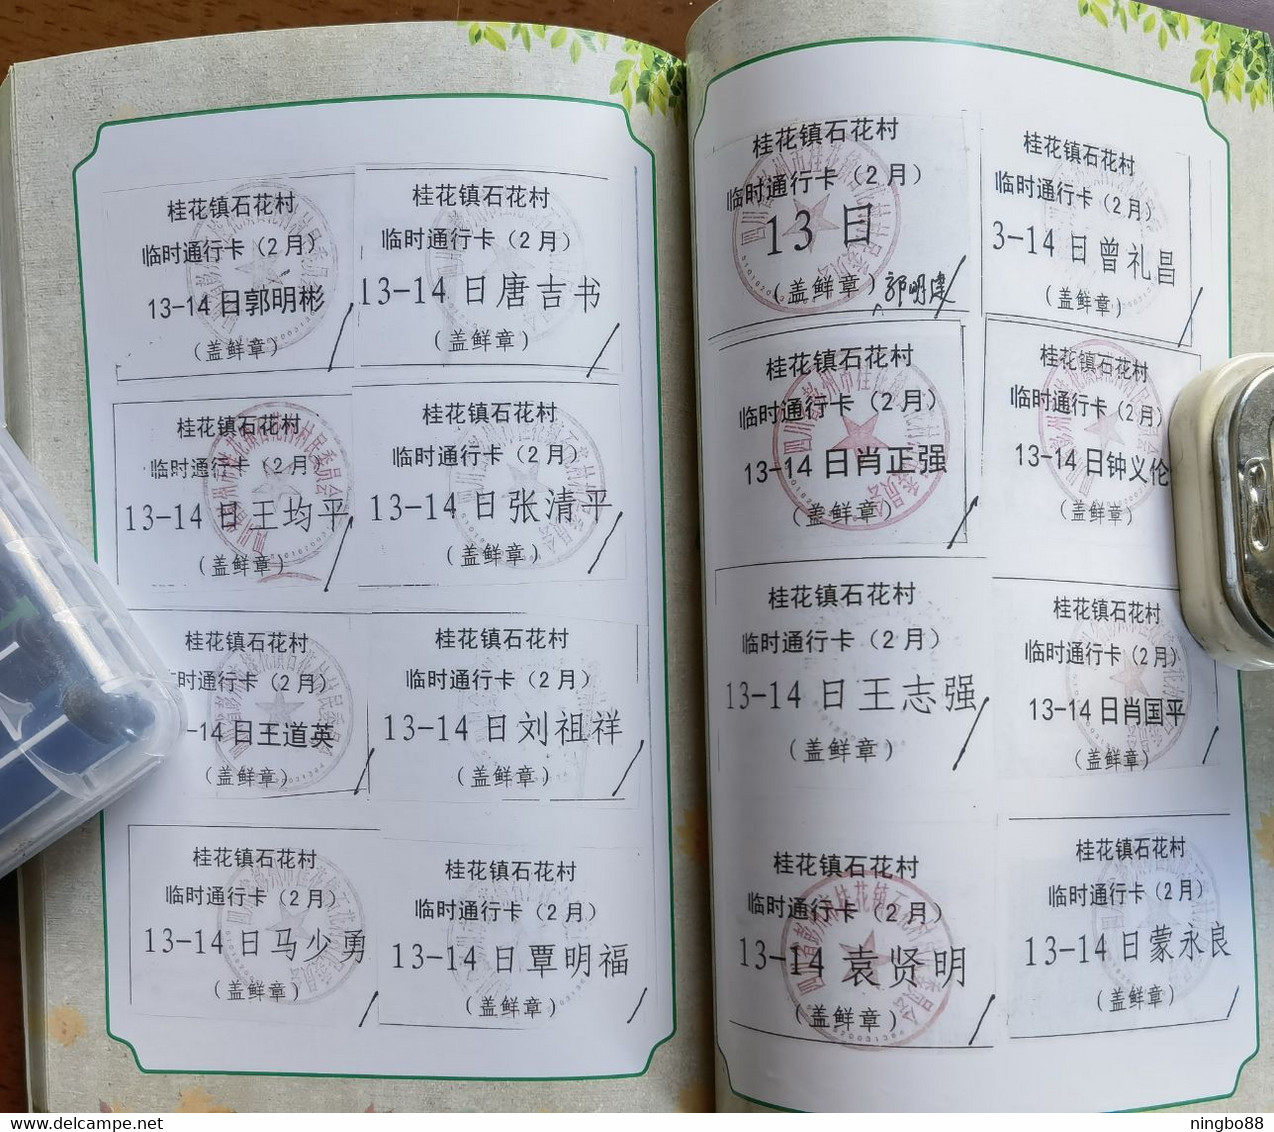 桂花镇石花村
临时通行卡（2月）
13-14日郭明彬
（盖鲜章）
桂花镇石花村
临时通行卡（2月）
13-14日唐吉书
（盖鲜章）
桂花镇石花村
临时通行卡（2月）
13-14日王均平
（盖鲜章）
桂花镇石花村
临时通行卡（2月）
13-14日张清平
（盖鲜章）
桂花镇石花村
时通行卡（2月）
-14日王道英
（盖鲜章）
桂花镇石花村
临时通行卡（2月）
13-14日刘祖祥
（盖鲜章）
桂花镇石花村
临时通行卡（2月）
13-14日马少勇
（盖鲜章）
桂花镇石花村
临时通行卡（2月）
13-14日覃明福
（盖鲜章）
桂花镇石花村
临时通行卡（2月）
13日
（盖鲜章）郭明建
桂花镇石花村
临时通行卡（2月）
3-14日曾礼昌
（盖鲜章）
桂花镇石花村
临时通行卡（2月）
13-14日肖正强
（盖鲜章）
桂花镇石花村
临时通行卡（2月）
13-14日钟义伦
（盖鲜章）
桂花镇石花村
临时通行卡（2月）
13-14日王志强
（盖鲜章）
桂花镇石花村
临时通行卡（2月）
13-14日肖国平
（盖鲜章）
桂花镇石花村
临时通行卡（2月）
13-14袁贤明
（盖鲜章）
桂花镇石花村
临时通行卡（2月）
13-14日蒙永良
（盖鲜章）
www.delcampe.net
ningbo88